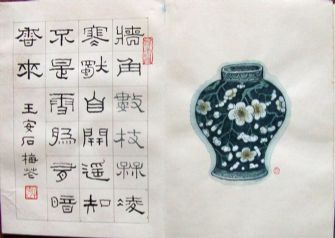 牆角數枝梅凌
寒獨自開遙知
不是雪為有暗
香來
王安石梅花